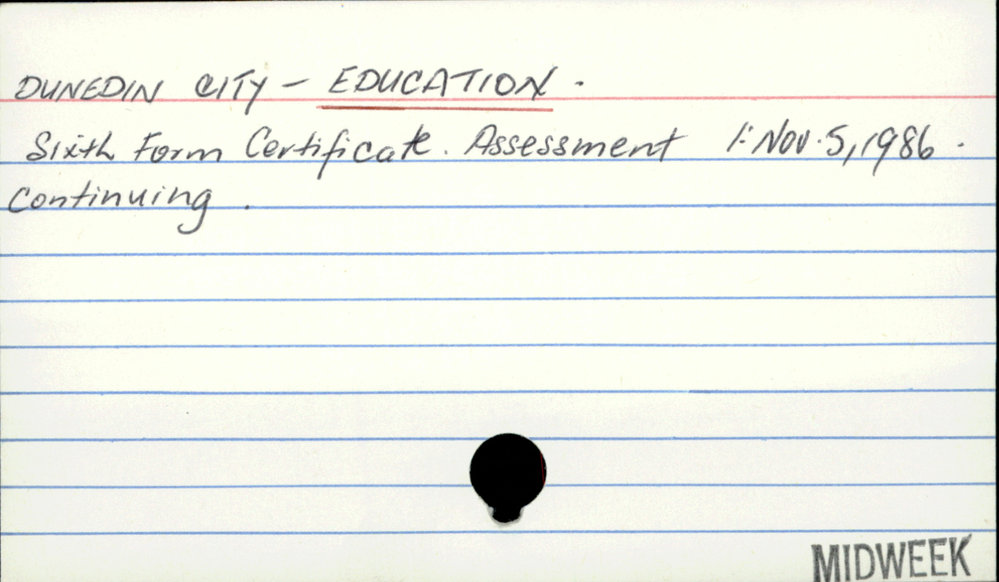 DUNEDIN CITY – EDUCATION.
Sixth Form Certificate. Assessment 1: Nov. 5, 1986.
Continuing.
MIDWEEK